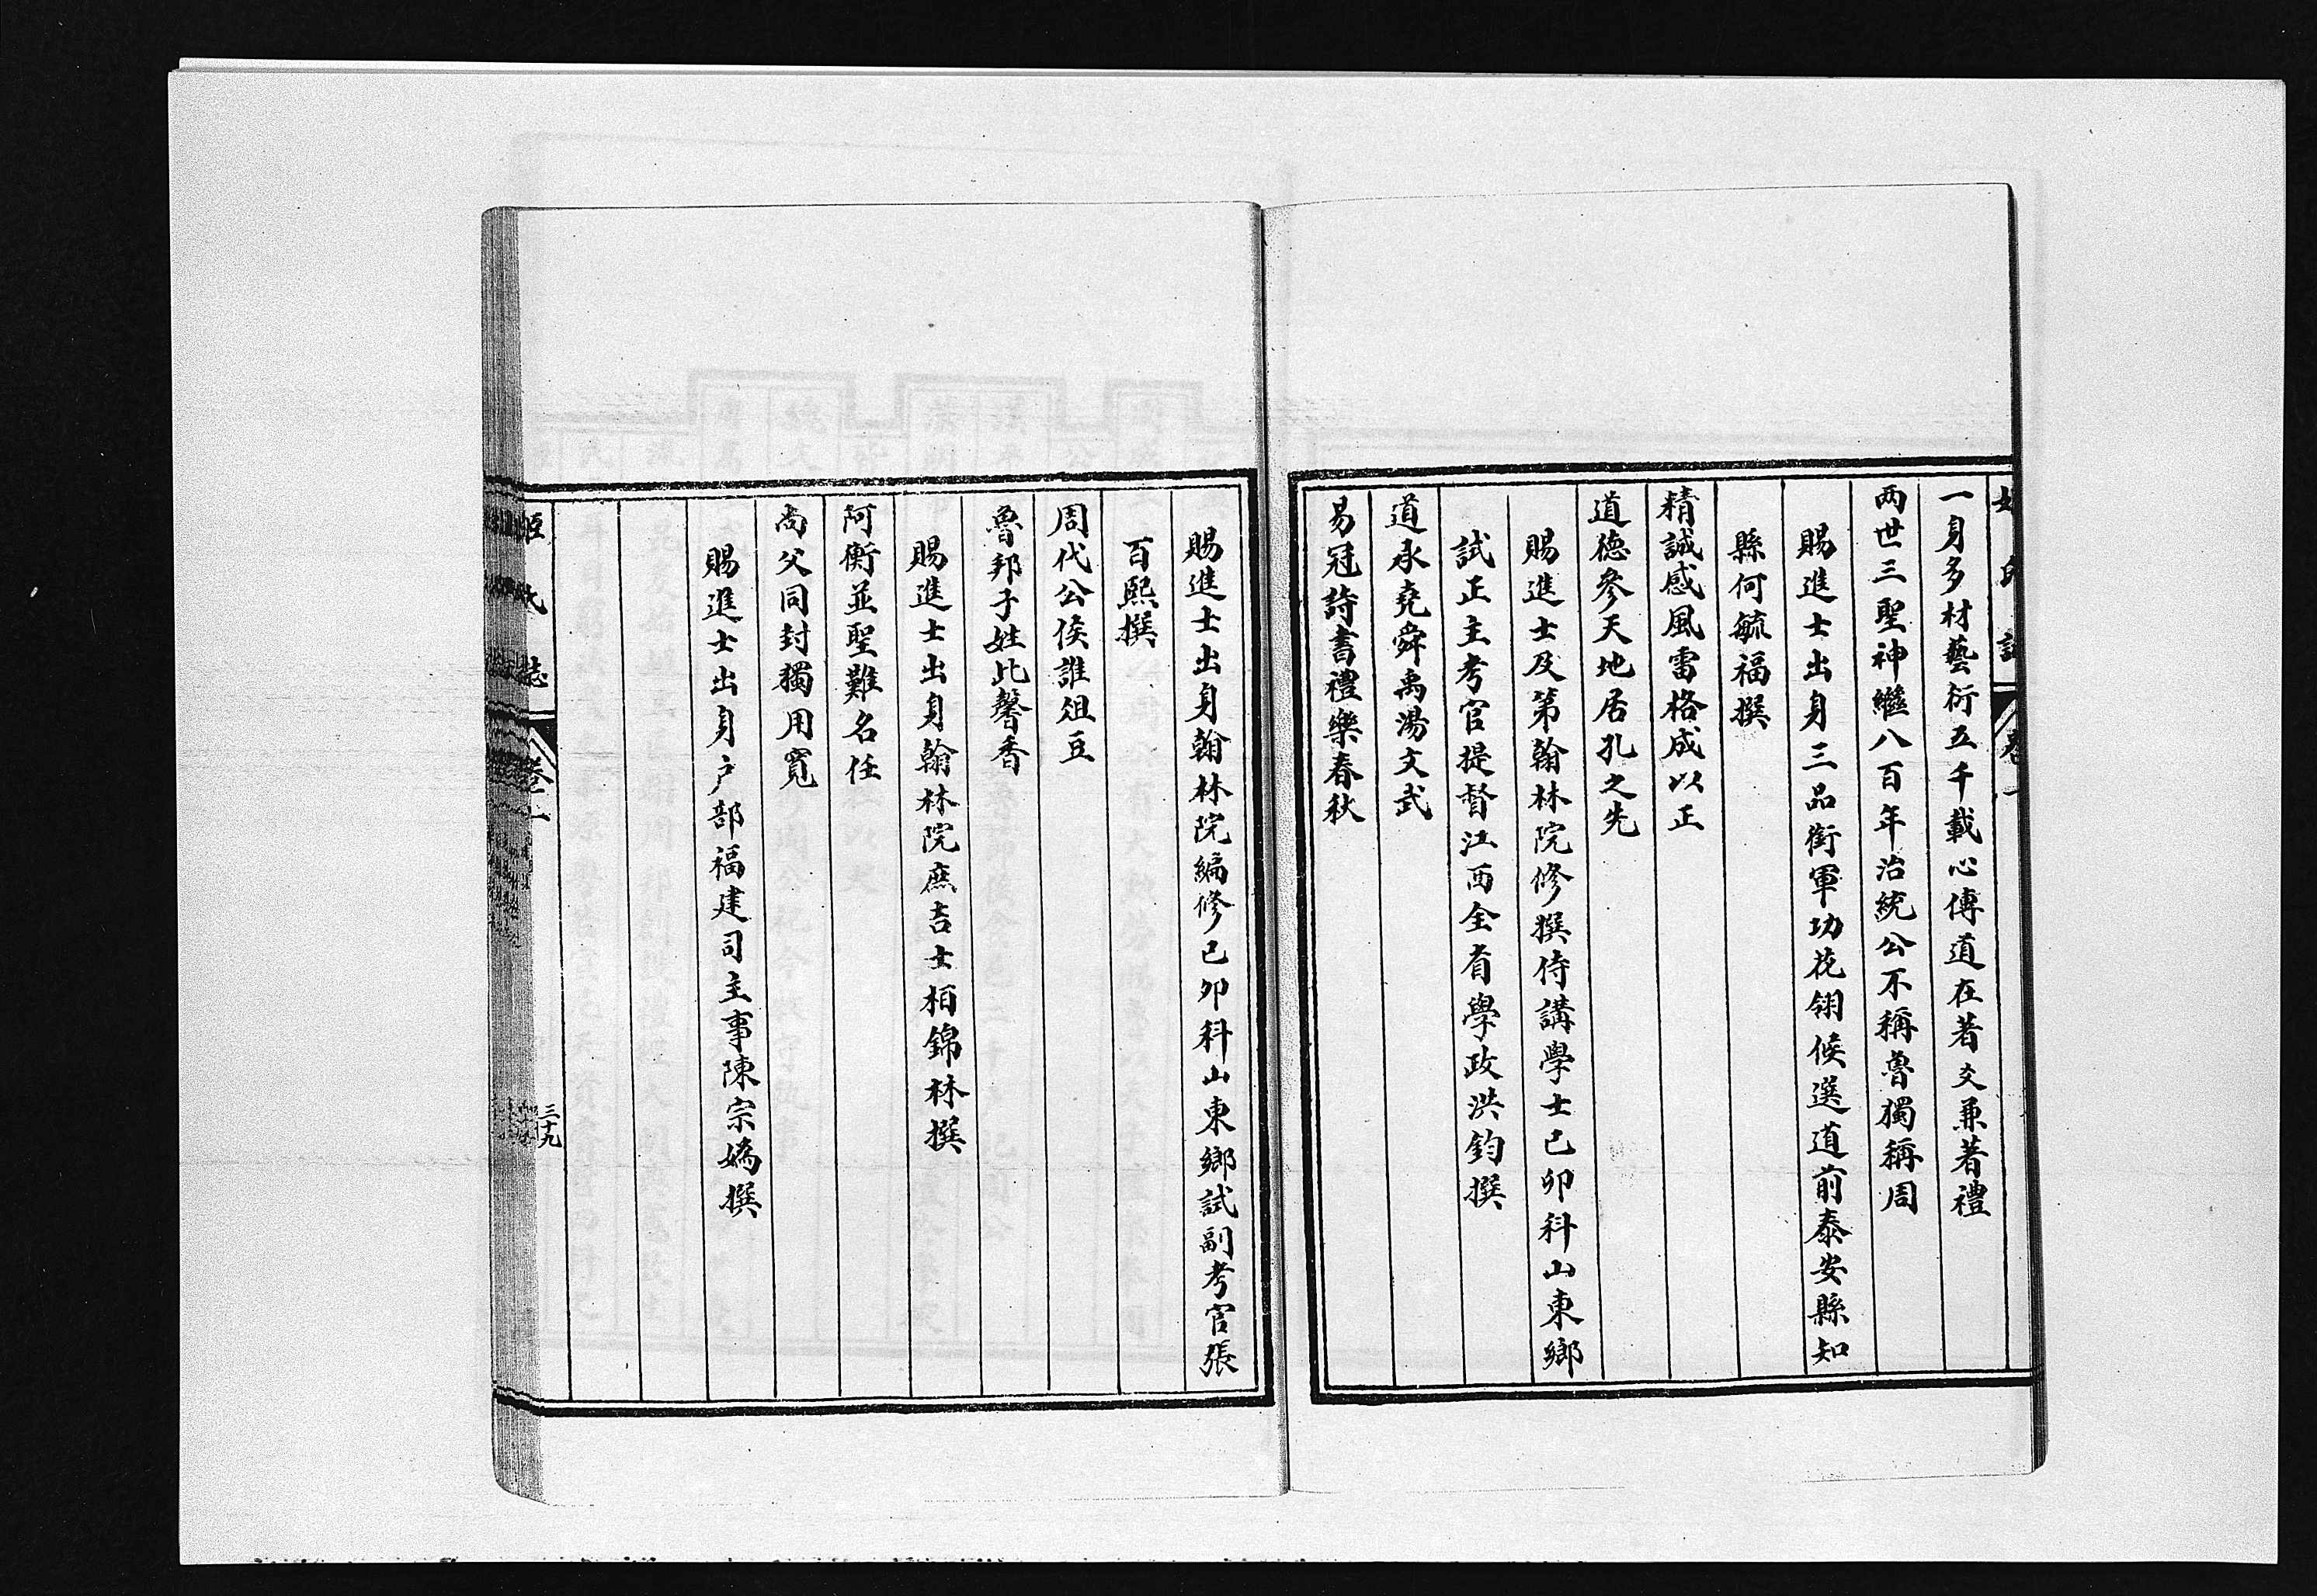 一身多材藝衍五千載心傳道在著爻兼著禮
两世三聖神繼八百年治統公不稱魯獨稱周
賜進士出身三品銜軍功花翎候選道前泰安縣知
縣何毓福撰
精誠感風雷格成以正
道德參天地居孔之先
賜進士及第翰林院修撰侍講學士己卯科山東鄉
試正主考官提督江西全省學政洪鈞撰
道承堯舜禹湯文武
易冠詩書禮樂春秋
賜進士出身翰林院編修己卯科山東鄉試副考官張
百熙撰
周代公侯誰俎豆
魯邦子姓此馨香
賜進士出身翰林院庶吉士柏錦林撰
阿衡並聖難名任
尚父同封獨用寬
賜進士出身户部福建司主事陳宗媯撰
姬氏誌
卷二
三十九